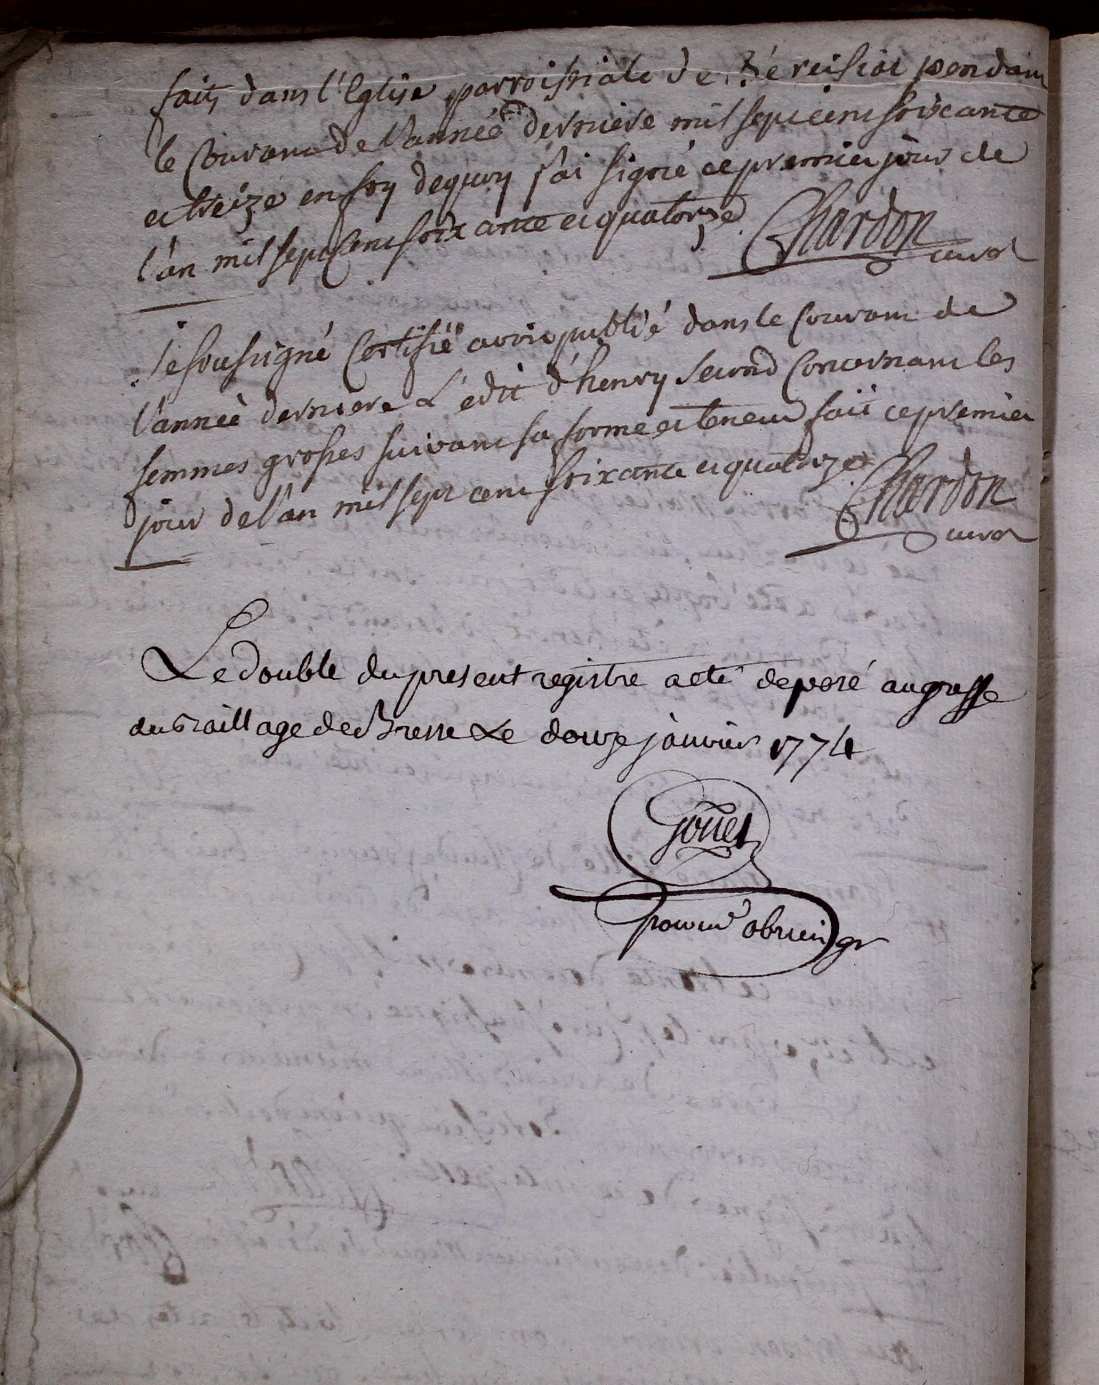 faits dans l'Eglise parroissiale de pendant
le Courant de l'année derniere mil sept cent soixante
et treize en foy dequoy j'ai signé ce premier jour de
l'an mil sept Cent soixante et quatorze Chardon
curé
Je soussigné Certifié avoir publié dans le Courant de
l'année derniere L'édit d'henry second Concernant les
femmes grosses suivant sa forme et teneur fait ce premier
jour de l'an mil sept cent soixante et quatorze Chardon
curé
Le double du present registre a eté deposé au greffe
du Baillage de Bresse Le douze janvier 1774